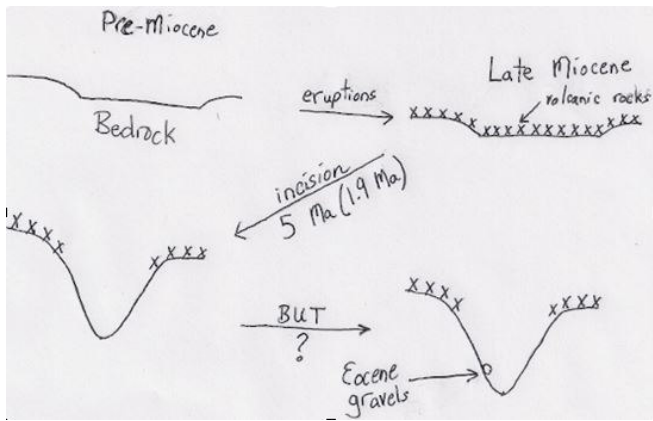 Pre-Miocene
Bedrock
eruptions
Late Miocene
volcanic rocks
xxxxxxxxxxxxxxxxxxxxx
incision
5 Ma (1.9 Ma)
xxxx
xxxx
BUT
?
xxxx
xxxx
Eocene
gravels